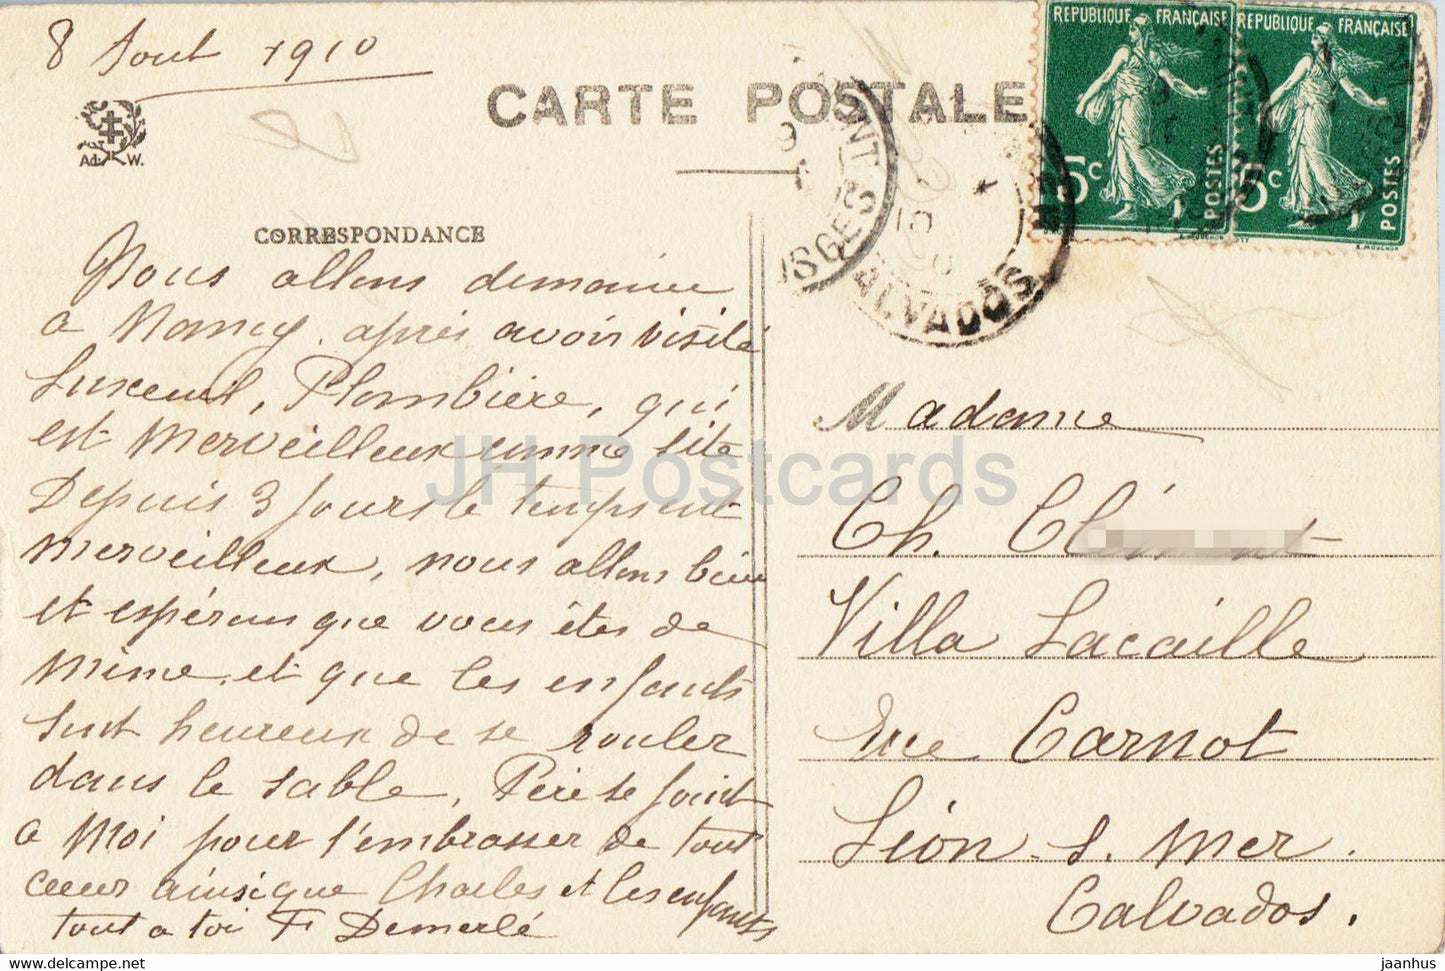 8 Aout 1910
CARTE POSTALE
REPUBLIQUE FRANÇAISE
5c
POSTES
REPUBLIQUE FRANÇAISE
5c
POSTES
A. W.
VOSGES
CALVADOS
CORRESPONDANCE
Nous allons demain
a Nancy, après avoir visité
Luxeuil, Plombière, qui
est merveilleux comme site
Depuis 3 jours le temps est
merveilleux, nous allons bien
et espérons que vous êtes de
même, et que les enfants
sont heureux de se rouler
dans le sable, Père se joint
a moi pour t'embrasser de tout
cœur ainsi que Charles et les enfants
tout a toi F Demerlé
Madame
Ch.
Villa Lacaille
Rue Carnot
Lion s. Mer.
Calvados.
JH Postcards
jaanhus.com
jaanhus